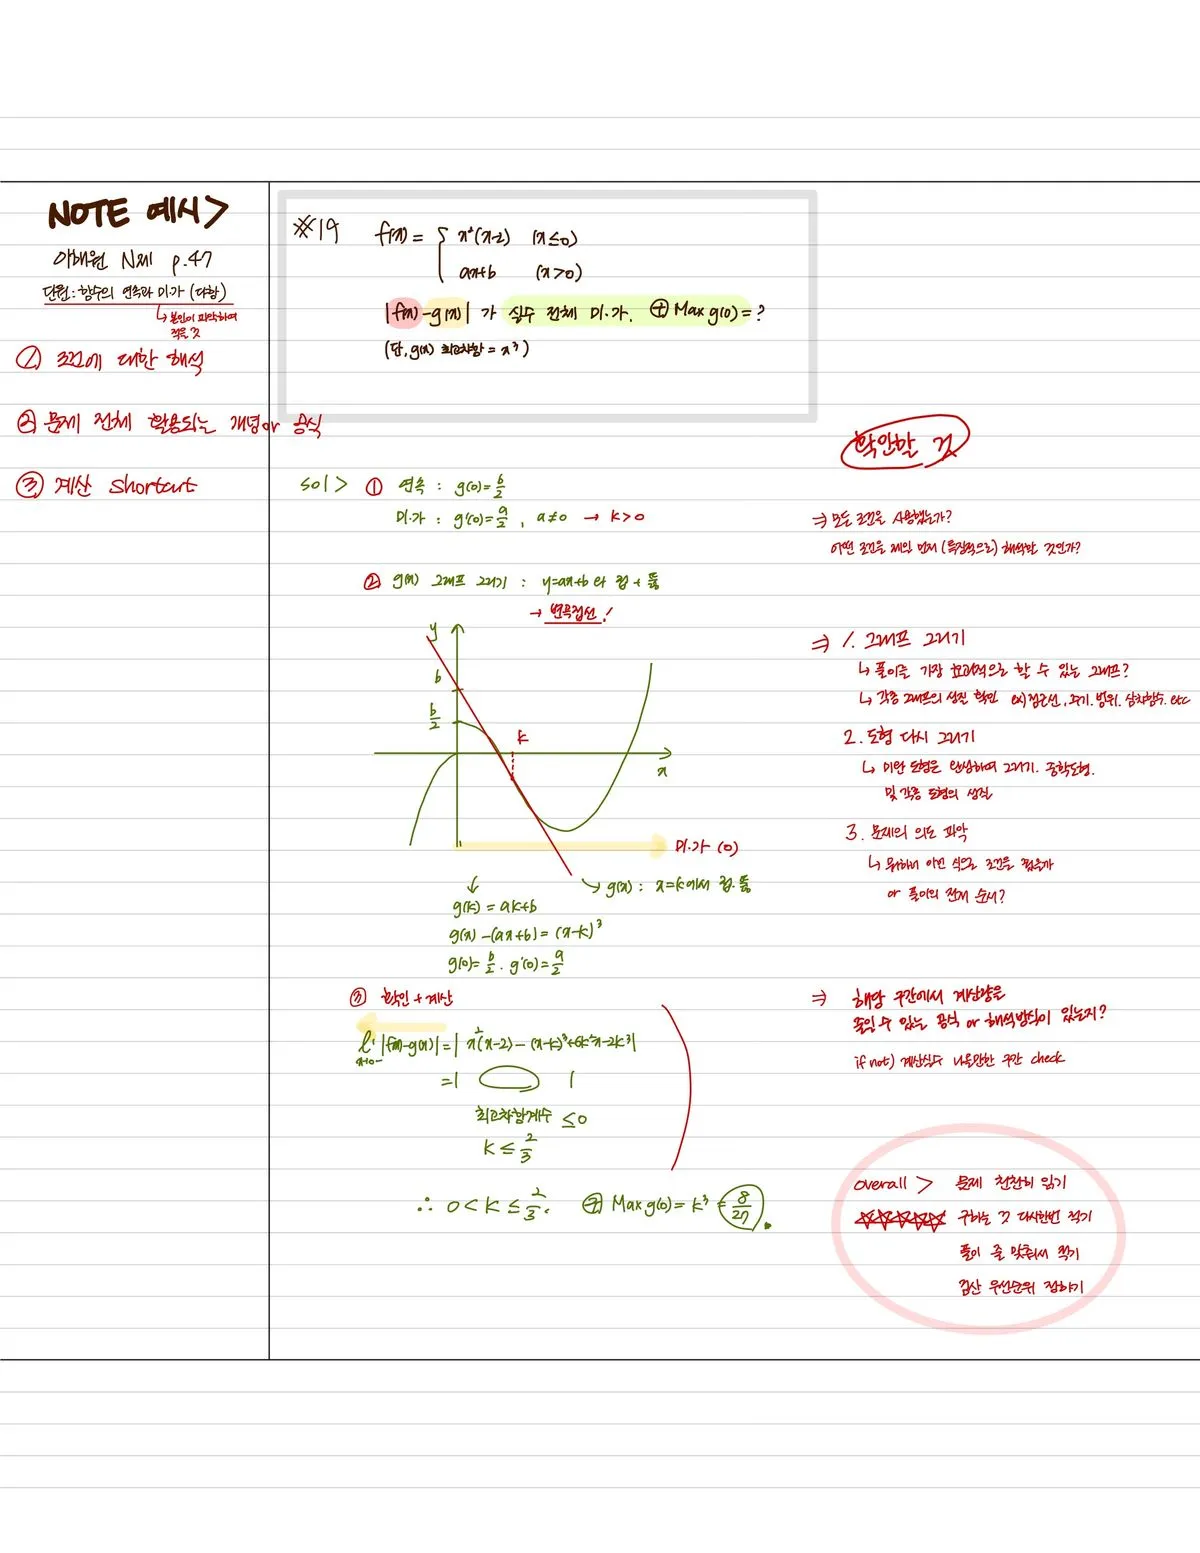 NOTE 예시>
이해원 N제 p.47
단원 : 함수의 연속과 미.가 (다항)
↳ 본인이 파악하여
적을 것
① 조건에 대한 해석
② 문제 전체 활용되는 개념 or 공식
③ 계산 shortcut
#19 f(x) = { x²(x-2) (x≤0)
ax+b (x>0)
|f(x)-g(x)| 가 실수 전체 미.가. ⊕ Max g(0) = ?
(단, g(x) 최고차항 = x³)
확인할 것
sol > ① 연속 : g(0) = b/2
미.가 : g'(0) = a/2 , a≠0 → k>0
⇒ 모든 조건을 사용했는가?
어떤 조건을 제일 먼저 (특징적으로) 해석한 것인가?
② g(x) 그래프 그리기 : y=ax+b 와 접 + 뚫
→ 변곡접선!
y
b
b/2
k
x
미.가 (0)
→ g(x) : x=k에서 접.뚫
g(k) = ak+b
g(x) - (ax+b) = (x-k)³
g(0) = b/2 . g'(0) = a/2
⇒ 1. 그래프 그리기
↳ 풀이를 가장 효과적으로 할 수 있는 그래프?
↳ 각종 그래프의 성질 확인 ex) 점근선, 주기. 범위. 삼차함수. etc
2. 도형 다시 그리기
↳ 미완 도형은 완성하여 그리기. 중학도형.
및 각종 도형의 성질
3. 문제의 의도 파악
↳ 뭐하러 이런 식으로 조건을 줬을까
or 풀이의 전개 순서?
③ 확인 + 계산
li x→0- |f(x)-g(x)| = | x²(x-2) - (x-k)³+6k²x-2k³|
= | |
최고차항계수 ≤0
k ≤ 2/3
∴ 0 < k ≤ 2/3. Max g(0) = k³ = 8/27.
⇒ 해당 구간에서 계산량을
줄일 수 있는 공식 or 해석방식이 있는지?
if not) 계산실수 나올만한 구간 check
overall > 문제 천천히 읽기
☆☆☆☆☆ 구하는 것 다시한번 적기
풀이 줄 맞춰서 적기
검산 우선순위 정하기